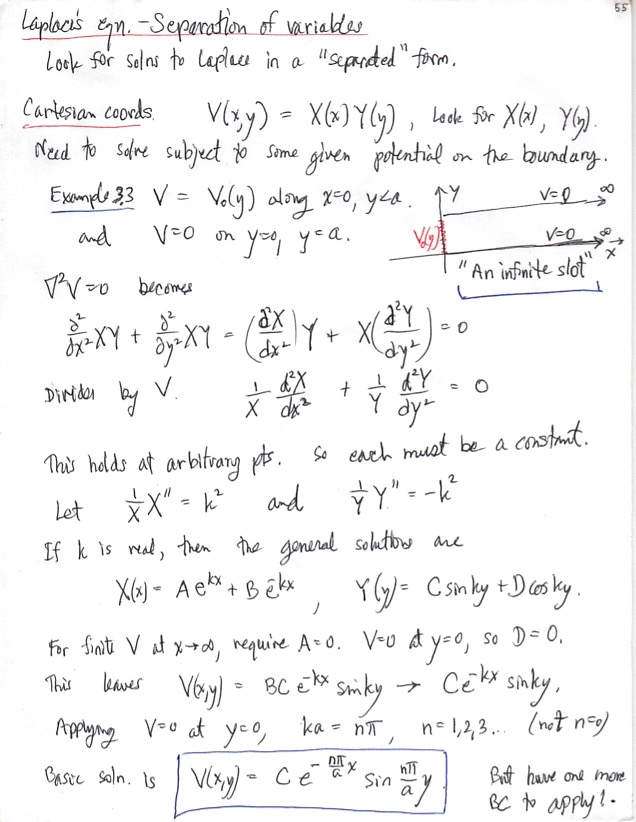 55
Laplace's eqn. - Separation of variables
Look for solns to Laplace in a "separated" form.
Cartesian coords. V(x,y) = X(x) Y(y) , Look for X(x), Y(y).
Need to solve subject to some given potential on the boundary.
Example 3.3 V = V₀(y) along x=0, y<a.
and V=0 on y=0, y=a.
Y V=0 ∞
V₀(y) V=0 ∞ x
"An infinite slot"
∇²V=0 becomes
∂²/∂x² XY + ∂²/∂y² XY = (d²X/dx²) Y + X (d²Y/dy²) = 0
Divide by V. 1/X d²X/dx² + 1/Y d²Y/dy² = 0
This holds at arbitrary pts. So each must be a constant.
Let 1/X X" = k² and 1/Y Y" = -k²
If k is real, then the general solutions are
X(x) = A e^{kx} + B e^{-kx} , Y(y) = C sin ky + D cos ky.
For finite V at x→∞, require A=0. V=0 at y=0, so D=0.
This leaves V(x,y) = BC e^{-kx} sin ky → C e^{-kx} sin ky,
Applying V=0 at y=0, ka = nπ, n=1,2,3... (not n=0)
Basic soln. is V(x,y) = C e^{-nπ/a x} sin nπ/a y But have one more
BC to apply!.